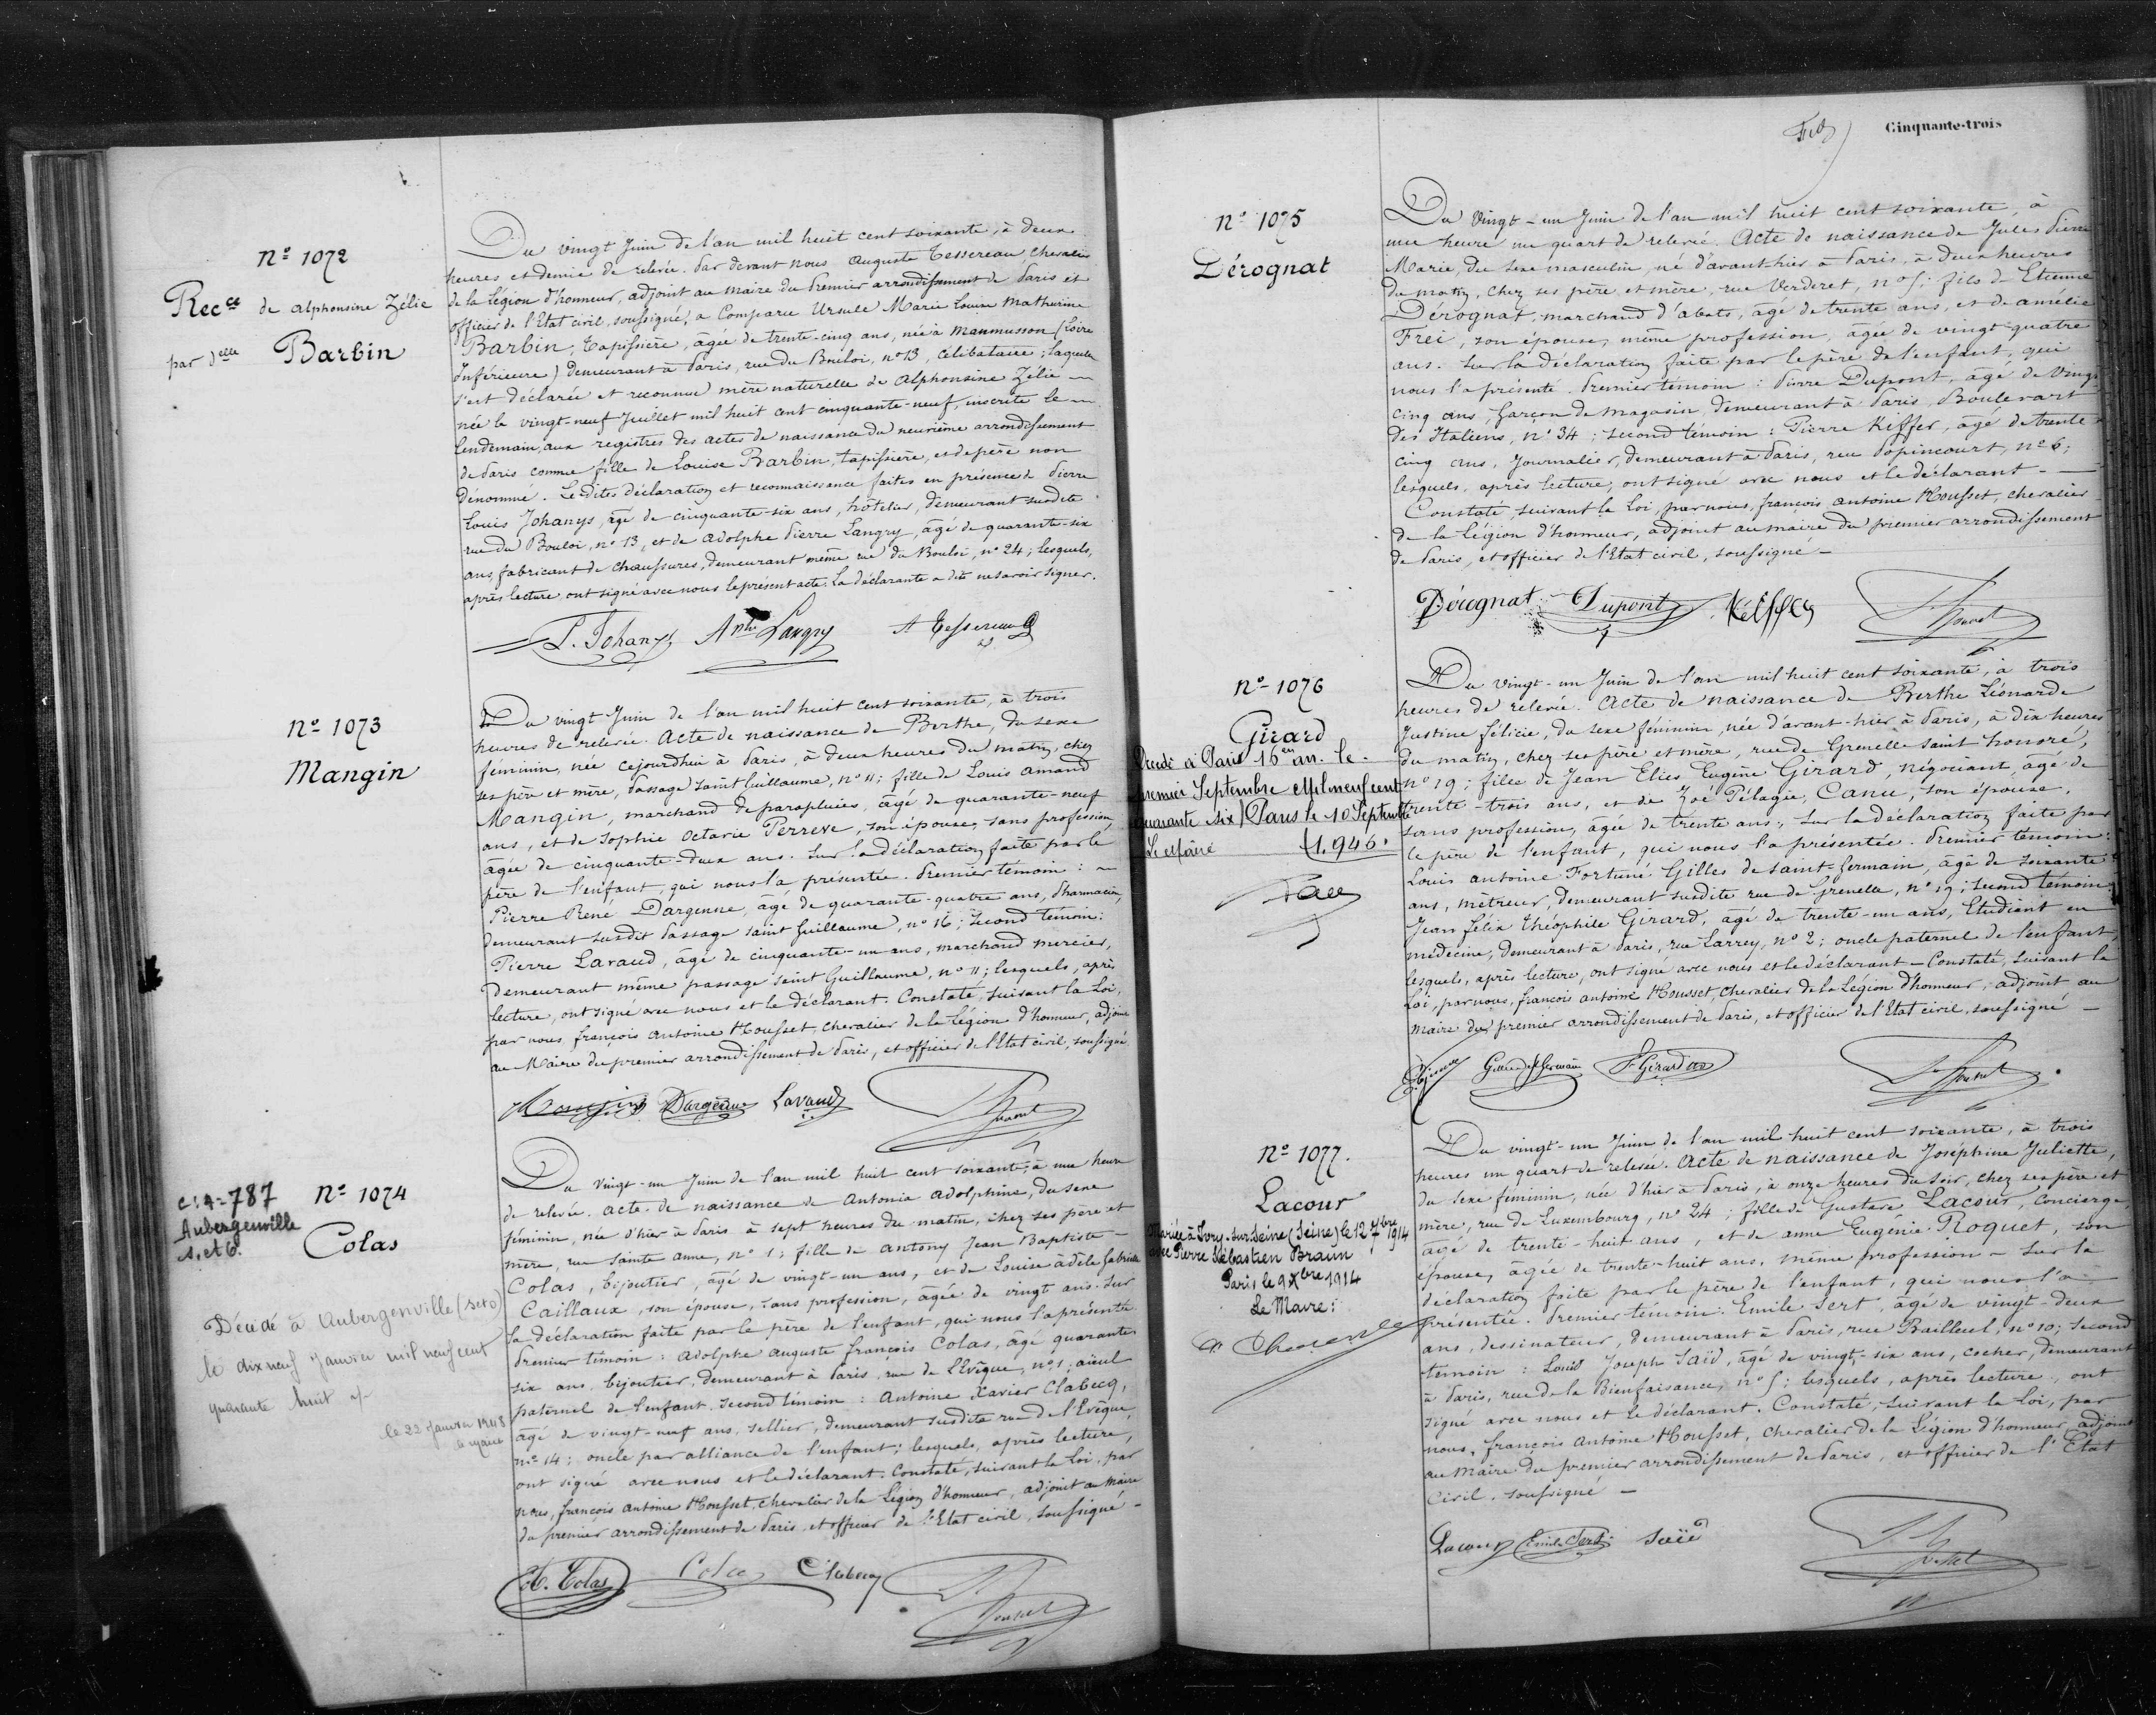 Nº 1072
Recce de Alphonsine Zélie
par delle Barbin
Du vingt Juin de l'an mil huit cent soixante, à deux
heures et demie de relevée. Par devant nous Auguste Tessereau, Chevalier
de la Légion d'honneur, adjoint au maire du Premier arrondissement de Paris et
officier de l'Etat civil, soussigné, a Comparu Ursule Marie Louise Mathurine
Barbin, Tapissière, âgée de trente-cinq ans, née à Maumusson (Loire
Inférieure) demeurant à Paris, rue du Bouloi, nº 13, célibataire; laquelle
s'est déclarée et reconnue mère naturelle de Alphonsine Zélie
née le vingt-neuf Juillet mil huit cent cinquante-neuf, inscrite le
lendemain, aux registres des actes de naissance du neuvième arrondissement
de Paris comme fille de Louise Barbin, tapissière, et de père non
dénommé. Les dites déclaration et reconnaissance faites en présence de Pierre
Louis Johanys, âgé de cinquante-six ans, hôtelier, demeurant susdite
rue du Bouloi, nº 13, et de Adolphe Pierre Langry, âgé de quarante-six
ans, fabricant de chaussures, demeurant même rue du Bouloi, nº 24; lesquels,
après lecture ont signé avec nous le présent acte. La déclarante a dit ne savoir signer.
L. Johanys Langry A Tessereau
Nº 1073
Mangin
Du vingt Juin de l'an mil huit cent soixante, à trois
heures de relevée. Acte de naissance de Berthe, du sexe
féminin, née cejourdhui à Paris, à deux heures du matin, chez
ses père et mère, Passage Saint Guillaume, nº 11; fille de Louis Amand
Mangin, marchand de parapluies, âgé de quarante-neuf
ans, et de Sophie Octavie Perreve, son épouse, sans profession,
âgée de cinquante-deux ans. Sur la déclaration faite par le
père de l'enfant, qui nous l'a présentée. Premier témoin:
Pierre René Dargenne, âgé de quarante-quatre ans, Pharmacien,
demeurant susdit Passage Saint Guillaume, nº 16; Second témoin:
Pierre Lavaud, âgé de cinquante-un ans, marchand mercier,
demeurant même passage Saint Guillaume, nº 11; lesquels, après
lecture, ont signé avec nous et le déclarant. Constaté, suivant la Loi,
par nous françois Antoine Housset, chevalier de la Légion d'honneur, adjoint
au Maire du premier arrondissement de Paris, et officier de l'Etat civil, soussigné
Mangin Dargenne Lavaud Housset
Nº 1074
Colas
787
Aubergenville
S. et O.
Décédé à Aubergenville (S et O)
le dix neuf Janvier mil neuf cent
quarante huit
le 22 Janvier 1948
le maire
Du vingt-un Juin de l'an mil huit cent soixante, à une heure
de relevée. Acte de naissance de Antonia Adolphine, du sexe
féminin, née d'hier à Paris à sept heures du matin, chez ses père et
mère, rue Sainte Anne, nº 1; fille de Antony Jean Baptiste
Colas, bijoutier, âgé de vingt-un ans, et de Louise Adèle Gabrielle
Caillaux, son épouse, sans profession, âgée de vingt ans. Sur
la déclaration faite par le père de l'enfant, qui nous l'a présentée
Premier témoin: Adolphe Auguste françois Colas, âgé quarante
six ans, bijoutier, demeurant à Paris, rue de l'Evêque, nº 1; aïeul
paternel de l'enfant. Second témoin: Antoine Xavier Clabecq,
âgé de vingt-neuf ans, sellier, demeurant susdite rue de l'Evêque,
nº 14; oncle par alliance de l'enfant; lesquels, après lecture,
ont signé avec nous et le déclarant. Constaté, suivant la Loi, par
nous, françois Antoine Housset, chevalier de la Légion d'honneur, adjoint au Maire
du premier arrondissement de Paris, et officier de l'Etat civil, soussigné
A. Colas Colas Clabecq Housset
Cinquante-trois
Nº 1075
Dérognat
Du vingt-un Juin de l'an mil huit cent soixante, à
une heure un quart de relevée. Acte de naissance de Jules Pierre
Marie, du sexe masculin, né d'avant-hier à Paris, à deux heures
du matin, chez ses père et mère, rue Verderet, nº 5; fils de Etienne
Dérognat, marchand d'abats, âgé de trente ans, et de Amélie
Frei, son épouse, même profession, âgée de vingt-quatre
ans. Sur la déclaration faite par le père de l'enfant, qui
nous l'a présenté. Premier témoin: Pierre Dupont, âgé de vingt
cinq ans, Garçon de magasin, demeurant à Paris, Boulevart
des Italiens, nº 34; second témoin: Pierre Kiffer, âgé de trente
cinq ans, Journalier, demeurant à Paris, rue Popincourt, nº 6;
lesquels, après lecture, ont signé avec nous et le déclarant
Constaté, suivant la Loi, par nous, françois Antoine Housset, chevalier
de la Légion d'honneur, adjoint au maire du premier arrondissement
de Paris, et officier de l'Etat civil, soussigné
Dérognat Dupont Housset
Nº 1076
Girard
Décédé à Paris 16en arr. le
premier Septembre Mil neuf cent
quarante six / Paris le 10 Septembre
Le Maire 1.946.
Du vingt-un Juin de l'an mil huit cent soixante, à trois
heures de relevée. Acte de naissance de Berthe Léonarde
Justine Félicie, du sexe féminin, née d'avant-hier à Paris, à dix heures
du matin, chez ses père et mère, rue de Grenelle Saint honoré,
nº 19; fille de Jean Elies Eugène Girard, négociant, âgé de
trente-trois ans, et de Zoé Pélagie, Canu, son épouse,
sans profession, âgée de trente ans; sur la déclaration faite par
le père de l'enfant, qui nous l'a présentée. Premier témoin:
Louis Antoine Fortuné Gilles de Saint-Germain, âgé de soixante
ans, métreur, demeurant susdite rue de Grenelle, nº 19; second témoin:
Jean félix Théophile Girard, âgé de trente-un ans, Etudiant en
médecine, demeurant à Paris, rue Larrey, nº 2; oncle paternel de l'enfant,
lesquels, après lecture, ont signé avec nous et le déclarant — Constaté, suivant la
Loi, par nous, françois Antoine Housset, Chevalier de la Légion d'honneur, adjoint au
maire du premier arrondissement de Paris, et officier de l'Etat civil, soussigné
Gilles de St Germain Girard Housset
Nº 1077.
Lacour
Mariée à Ivry-sur-Seine (Seine) le 12 7bre 1914
avec Pierre Sébastien Braun
Paris le 9 Xbre 1914
Le Maire:
Du vingt-un Juin de l'an mil huit cent soixante, à trois
heures un quart de relevée. Acte de naissance de Joséphine Juliette,
du sexe féminin, née d'hier à Paris, à onze heures du soir, chez ses père et
mère, rue de Luxembourg, nº 24; fille de Gustave Lacour, concierge,
âgé de trente-huit ans, et de Anne Eugénie Roquet, son
épouse, âgée de trente-huit ans, même profession — Sur la
déclaration faite par le père de l'enfant, qui nous l'a
présentée. Premier témoin: Emile Sert, âgé de vingt-deux
ans, dessinateur, demeurant à Paris, rue Bailleul, nº 10; Second
témoin: Louis Joseph Saïd, âgé de vingt-six ans, cocher, demeurant
à Paris, rue de la Bienfaisance, nº 5; lesquels, après lecture, ont
signé avec nous et le déclarant. Constaté, suivant la Loi, par
nous, françois Antoine Housset, Chevalier de la Légion d'honneur, adjoint
au Maire du premier arrondissement de Paris, et officier de l'Etat
Civil, soussigné
Lacour Emile Sert Saïd Housset